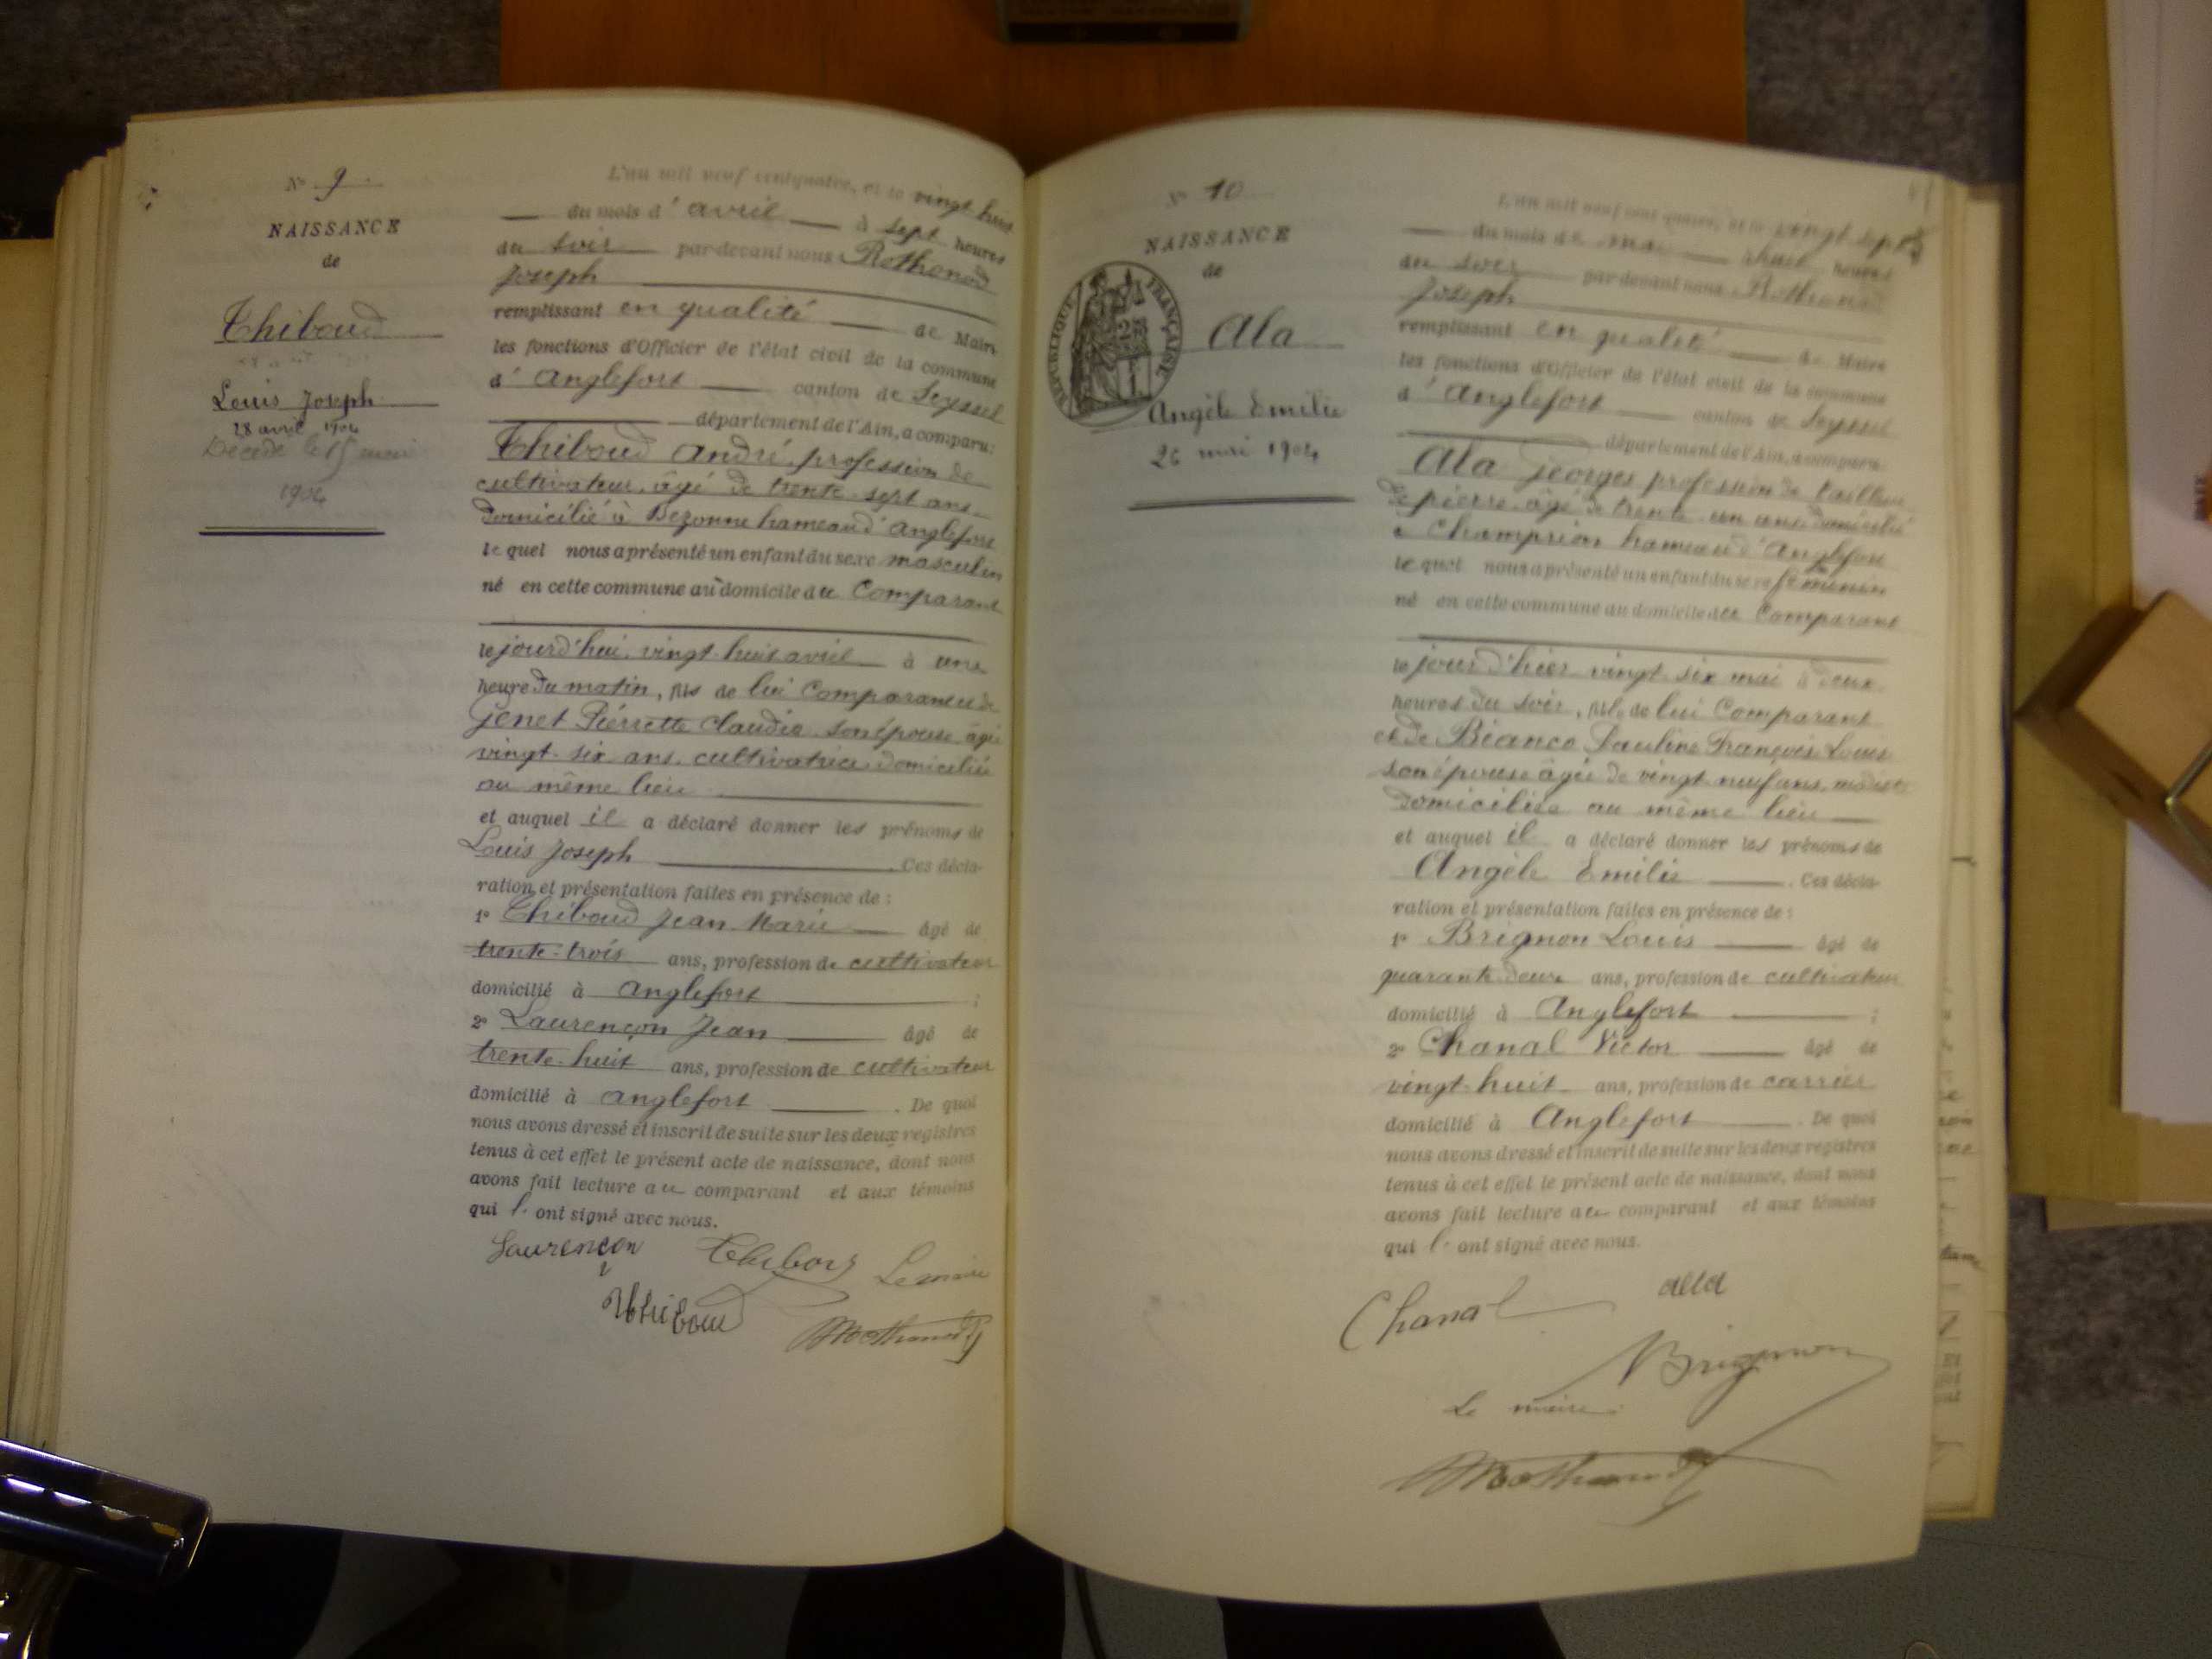 N° 9
NAISSANCE
de
Thiboud
Louis Joseph
28 avril 1904
Décédé le 15 mai
1904
L'an mil neuf cent quatre, et le vingt huit
du mois d' avril à sept heures
du soir par-devant nous Rothonod
Joseph
remplissant en qualité de Maire
les fonctions d'Officier de l'état civil de la commune
d' Anglefort canton de Seyssel
département de l'Ain, a comparu:
Thiboud André, profession de
cultivateur, âgé de trente-sept ans
domicilié à Bezonne hameau d'Anglefort
lequel nous a présenté un enfant du sexe masculin
né en cette commune au domicile du Comparant
le jourd'hui vingt-huit avril à une
heure du matin, fils de lui Comparant et de
Genet Pierrette Claudie son épouse âgée
vingt-six ans, cultivatrice domiciliée
au même lieu
et auquel il a déclaré donner les prénoms de
Louis Joseph . Ces décla-
ration et présentation faites en présence de :
1° Thiboud Jean Marie âgé de
trente-trois ans, profession de cultivateur
domicilié à Anglefort ;
2° Laurençon Jean âgé de
trente-huit ans, profession de cultivateur
domicilié à Anglefort . De quoi
nous avons dressé et inscrit de suite sur les deux registres
tenus à cet effet le présent acte de naissance, dont nous
avons fait lecture au comparant et aux témoins
qui l' ont signé avec nous.
Laurençon Thiboud Le maire
Thiboud Rothonod
N° 10
NAISSANCE
de
RÉPUBLIQUE FRANÇAISE
Ala
Angèle Emilie
26 mai 1904
L'an mil neuf cent quatre, et le vingt sept
du mois de mai à huit heures
du soir par-devant nous Rothonod
Joseph
remplissant en qualité de Maire
les fonctions d'Officier de l'état civil de la commune
d' Anglefort canton de Seyssel
département de l'Ain, a comparu
Ala Georges profession de tailleur
de pierre âgé de trente-un ans domicilié
à Champrion hameau d'Anglefort
lequel nous a présenté un enfant du sexe féminin
né en cette commune au domicile du Comparant
le jour d'hier vingt-six mai à deux
heures du soir, fille de lui Comparant
et de Bianco Pauline François Louise
son épouse âgée de vingt-neuf ans, modiste
domiciliée au même lieu
et auquel il a déclaré donner les prénoms de
Angèle Emilie . Ces décla-
ration et présentation faites en présence de :
1° Brignon Louis âgé de
quarante-deux ans, profession de cultivateur
domicilié à Anglefort ;
2° Chanal Victor âgé de
vingt-huit ans, profession de carrier
domicilié à Anglefort . De quoi
nous avons dressé et inscrit de suite sur les deux registres
tenus à cet effet le présent acte de naissance, dont nous
avons fait lecture au comparant et aux témoins
qui l' ont signé avec nous.
Chanal alla
Brignon
Le maire
Rothonod